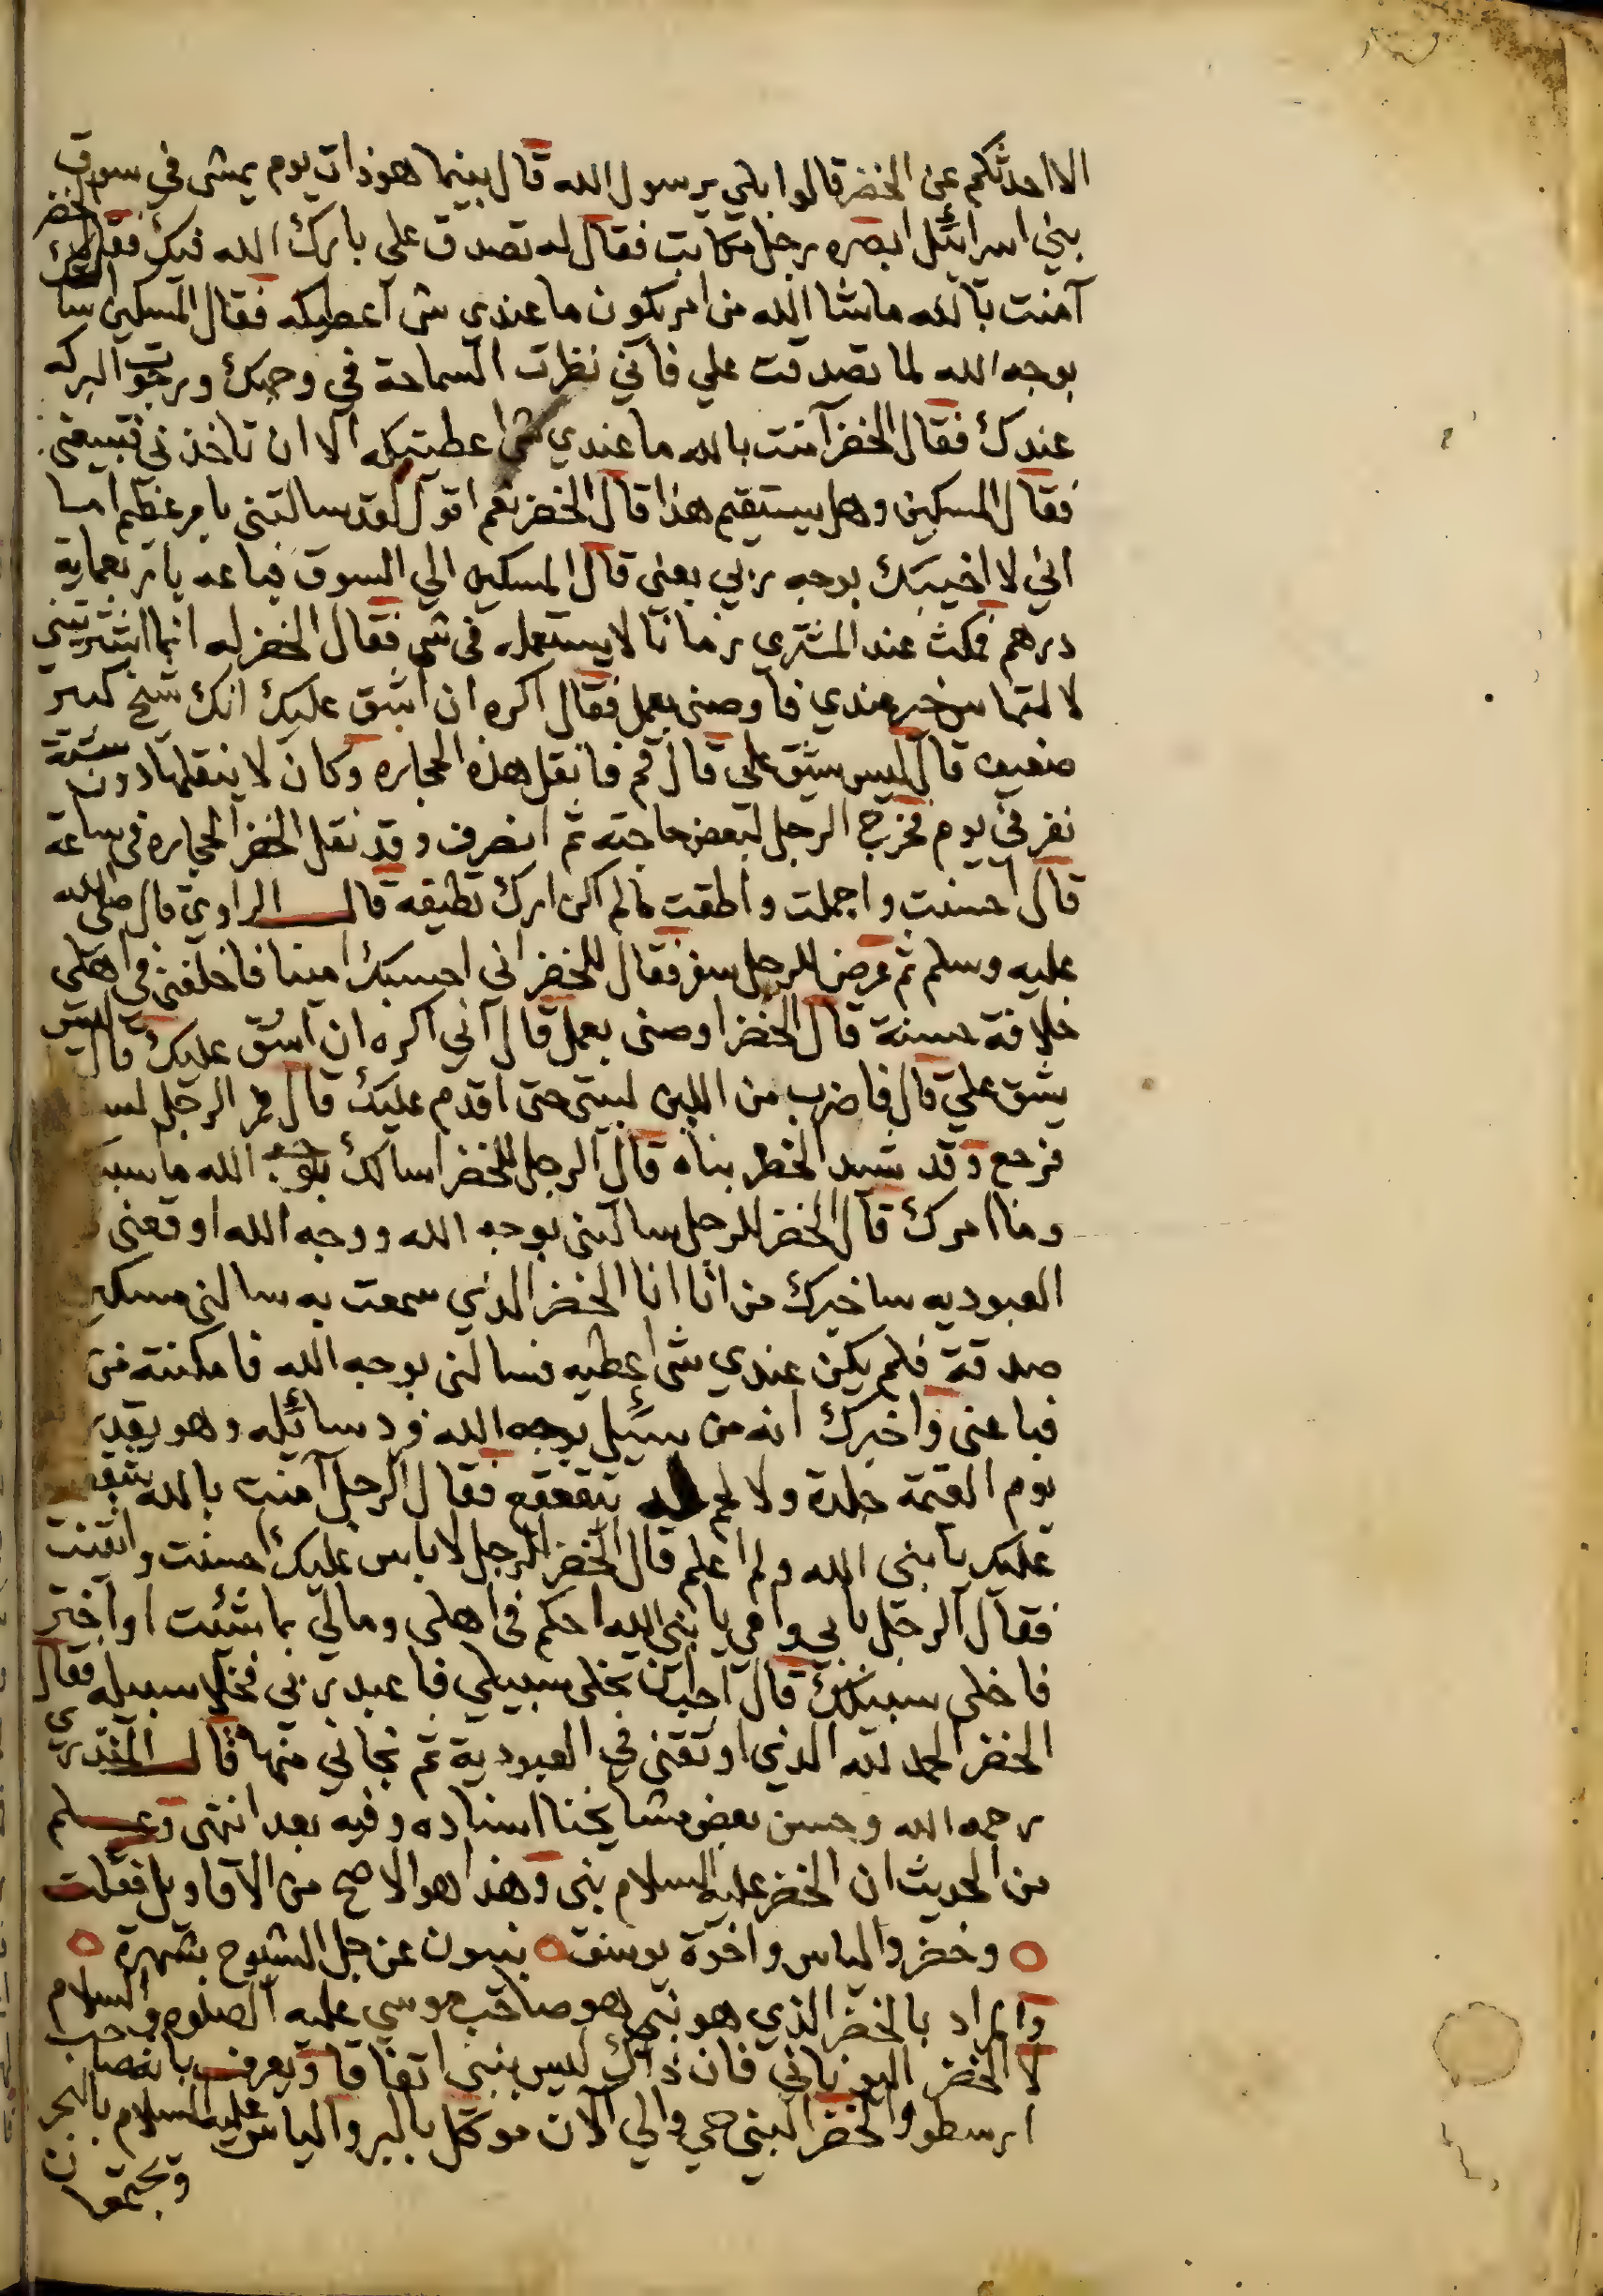 الا احدثكم عن الخضر قالوا بلى يرسول الله قال بينما هو ذات يوم يمشى في سوق
بني اسرائيل ابصره رجل مكاتب فقال له تصدق علي بارك الله فيك فقال الخضر
آمنت بالله ما شا الله من امر يكون ما عندي شى اعطيكه فقال المسكين اسالك
بوجه الله لما تصدقت علي فاني نظرت السماحة في وجهك ورجوت البركه
عندك فقال الخضر آمنت بالله ما عندي شى اعطيتكه الا ان تاخذني فتبيعني
فقال المسكين وهل يستقيم هذا قال الخضر نعم اقول لقد سالتني بامر عظيم اما
اني لا اخيبك بوجه ربي بعنى قال المسكين الي السوق فباعه باربعماية
درهم فمكث عند المشتري زمانا لا يستعمله في شى فقال الخضر له انما اشتريتني
لالتماس خير عندي فاوصنى بعمل فقال اكره ان اشق عليك انك شيخ كبير
ضعيف قال ليس يشق علي قال قم فانقل هذه الحجاره وكان لا ينقلها دون ستة
نفر في يوم فخرج الرجل لبعض حاجته ثم انصرف وقد نقل الخضر الحجاره في ساعة
قال احسنت واجملت واطقت مالم اكن ارك تطيقه قال الراوي قال صلى الله
عليه وسلم ثم عرض للرجل سفر فقال للخضر اني احسبك امينا فاخلفني في اهلي
خلافة حسنة قال الخضر اوصنى بعمل قال اني اكره ان اشق عليك قال ليس
يشق علي قال فاضرب من اللبن لبيتى حتى اقدم عليك قال فمر الرجل
فرجع وقد شيد الخضر بناه قال الرجل للخضر اسالك بوجه الله ما
وما امرك قال الخضر للرجل سالتنى بوجه الله ووجه الله اوقعنى
العبوديه ساخبرك من انا انا الخضر الذي سمعت به سالنى مسكين
صدقة فلم يكن عندي شى اعطيه فسالنى بوجه الله فامكنته من
فباعنى واخبرك انه من سئيل بوجه الله فرد سائله وهو يقدر
يوم القيمة جلدة ولا لحم له يتقعقع فقال الرجل آمنت بالله
عليك يا نبى الله ولم اعلم قال الخضر للرجل لا باس عليك احسنت واتقنت
فقال الرجل بابي وامي يا نبى الله احكم في اهلى ومالي بما شئت او اختر
فاخلى سبيلك قال احب ان تخلى سبيلي فاعبد ربي فخلا سبيله فقال
الخضر الحمد لله الذي اوثقنى في العبودية ثم نجاني منها قال المنذري
رحمه الله وحسن بعض مشايخنا اسناده وفيه بعد انتهى وعلم
من الحديث ان الخضر عليه السلام نبى وهذا هو الاصح من الاقاويل فقلت
وخضر والياس واخوة يوسف نبيون عن جل الشيوخ بشهرة
والمراد بالخضر الذي هو نبي هو صاحب موسى عليه الصلوه والسلام
لا الخضر اليوناني فان ذاك ليس بنبى اتفاقا ويعرف بانه صاحب
ارسطو والخضر النبى حي والي الان موكل بالبر والياس عليه السلام بالبحر
ويجتمعان